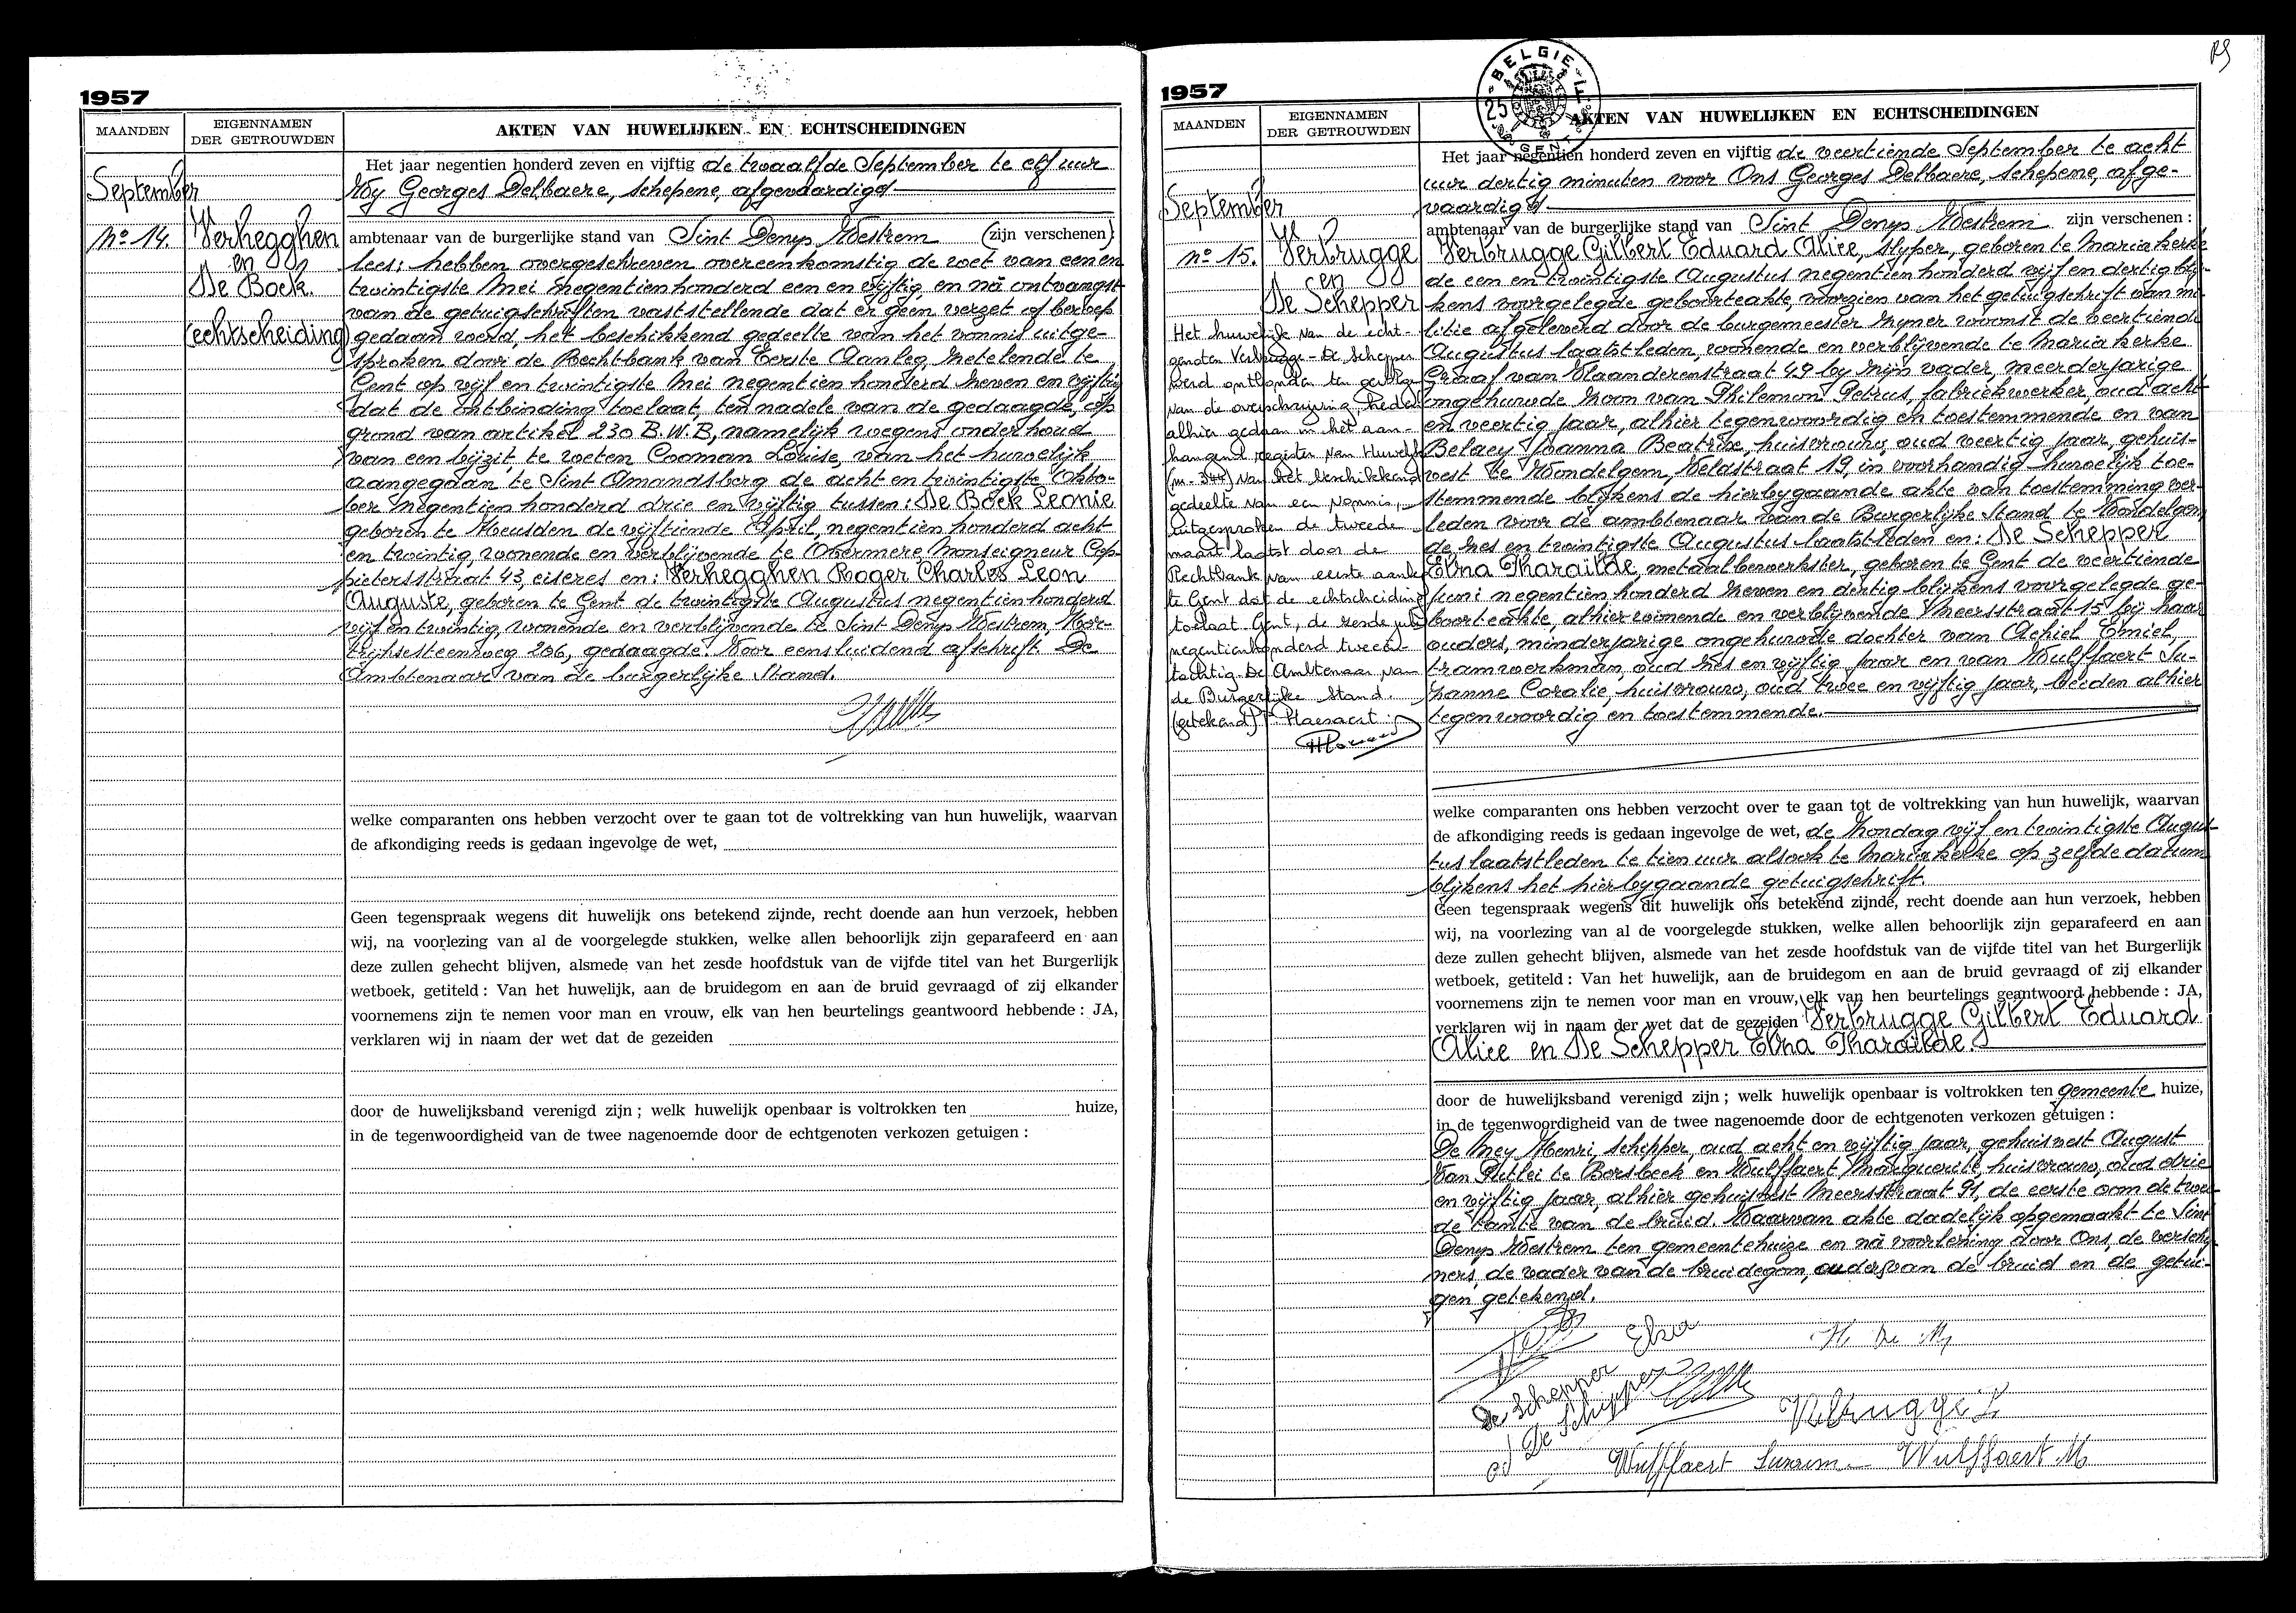 1957
MAANDEN
EIGENNAMEN
DER GETROUWDEN
AKTEN VAN HUWELIJKEN EN ECHTSCHEIDINGEN
September
No 14.
Verhegghen
en
De Bock.
(echtscheiding)
Het jaar negentien honderd zeven en vijftig de twaalfde September te elf uur
Wy Georges Delbaere, schepene, afgevaardigd
ambtenaar van de burgerlijke stand van Sint Denys Westrem (zijn verschenen)
lees: hebben overgeschreven overeenkomstig de wet van een en
twintigste Mei negentienhonderd een en vijftig, en nà ontvangst
van de getuigschriften vaststellende dat er geen verzet of beroep
gedaan werd, het beschikkend gedeelte van het vonnis uitge-
sproken door de Rechtbank van Eerste Aanleg, zetelende te
Gent op vijf en twintigste Mei negentien honderd zeven en vijftig
dat de ontbinding toelaat, ten nadele van de gedaagde, op
grond van artikel 230 B.W.B, namelijk wegens onderhoud
van een bijzit, te weten Cooman Louise, van het huwelijk
aangegaan te Sint Amandsberg de acht en twintigste Okto-
ber negentien honderd drie en vijftig tussen: De Bock Leonie
geboren te Heusden de vijftiende April, negentien honderd acht
en twintig, wonende en verblijvende te Overmere, Monseigneur Cop-
pietersstraat 43, eiseres en: Verhegghen Roger Charles Leon
Auguste, geboren te Gent de twintigste Augustus negentienhonderd
vijf en twintig, wonende en verblijvende te Sint Denys Westrem, Kor-
trijksesteenweg 206, gedaagde. Voor eensluidend afschrift. De
Ambtenaar van de burgerlijke Stand.
welke comparanten ons hebben verzocht over te gaan tot de voltrekking van hun huwelijk, waarvan
de afkondiging reeds is gedaan ingevolge de wet,
Geen tegenspraak wegens dit huwelijk ons betekend zijnde, recht doende aan hun verzoek, hebben
wij, na voorlezing van al de voorgelegde stukken, welke allen behoorlijk zijn geparafeerd en aan
deze zullen gehecht blijven, alsmede van het zesde hoofdstuk van de vijfde titel van het Burgerlijk
wetboek, getiteld : Van het huwelijk, aan de bruidegom en aan de bruid gevraagd of zij elkander
voornemens zijn te nemen voor man en vrouw, elk van hen beurtelings geantwoord hebbende : JA,
verklaren wij in naam der wet dat de gezeiden
door de huwelijksband verenigd zijn ; welk huwelijk openbaar is voltrokken ten huize,
in de tegenwoordigheid van de twee nagenoemde door de echtgenoten verkozen getuigen :
1957
BELGIE
25
GENT
MAANDEN
EIGENNAMEN
DER GETROUWDEN
AKTEN VAN HUWELIJKEN EN ECHTSCHEIDINGEN
September
No 15.
Verbrugge
en
De Schepper
Het huwelijk van de echt-
genoten Verbrugge - De Schepper
werd ontbonden ten gevolge
van de overschrijving, heden
alhier gedaan in het aan-
hangend register van Huwelijk
(nr. 344) van het beschikkend
gedeelte van een vonnis,
uitgesproken de tweede
maart laatst door de
Rechtbank van eerste aanleg
te Gent dat de echtscheiding
toelaat. Gent, de zesde juli
negentienhonderd tweeën-
tachtig. De Ambtenaar van
de Burgerlijke Stand.
(getekend)
Het jaar negentien honderd zeven en vijftig de veertiende September te acht
uur dertig minuten voor Ons Georges Delbaere, schepene, afge-
vaardigd
ambtenaar van de burgerlijke stand van Sint Denys Westrem zijn verschenen :
Verbrugge Gilbert Eduard Alice, slyper, geboren te Mariakerke
de een en twintigste Augustus negentienhonderd vijf en dertig blij-
kens voorgelegde geboorteakte, voorzien van het getuigschrift van mi-
litie afgeleverd door de burgemeester zyner woonst de veertiende
Augustus laatstleden, wonende en verblijvende te Mariakerke
Graaf van Vlaanderenstraat 49 by zijn vader, meerderjarige
ongehuwde zoon van Philemon Petrus, fabriekwerker, oud acht
en veertig jaar, alhier tegenwoordig en toestemmende en van
Belaey Joanna Beatrice, huisvrouw, oud veertig jaar, gehuis-
vest te Wondelgem, Veldstraat 19, in voorhandig huwelijk toe-
stemmende blijkens de hierbygaande akte van toestemming ver-
leden voor de ambtenaar van de Burgerlijke Stand te Wondelgem
de zes en twintigste Augustus laatstleden en: De Schepper
Elza Tharailde, metaalbewerkster, geboren te Gent de veertiende
Juni negentien honderd zeven en dertig blijkens voorgelegde ge-
boorteakte, alhier wonende en verblijvende Meersstraat 15 bij haar
ouders, minderjarige ongehuwde dochter van Achiel Emiel,
tramwerkman, oud zes en vijftig jaar en van Wulffaert Su-
zanne Coralie, huisvrouw, oud twee en vijftig jaar, beiden alhier
tegenwoordig en toestemmende.
welke comparanten ons hebben verzocht over te gaan tot de voltrekking van hun huwelijk, waarvan
de afkondiging reeds is gedaan ingevolge de wet, de Zondag vijf en twintigste Augus-
tus laatstleden te tien uur alsook te Mariakerke op zelfde datum
blijkens het hierbygaande getuigschrift.
Geen tegenspraak wegens dit huwelijk ons betekend zijnde, recht doende aan hun verzoek, hebben
wij, na voorlezing van al de voorgelegde stukken, welke allen behoorlijk zijn geparafeerd en aan
deze zullen gehecht blijven, alsmede van het zesde hoofdstuk van de vijfde titel van het Burgerlijk
wetboek, getiteld : Van het huwelijk, aan de bruidegom en aan de bruid gevraagd of zij elkander
voornemens zijn te nemen voor man en vrouw, elk van hen beurtelings geantwoord hebbende : JA,
verklaren wij in naam der wet dat de gezeiden Verbrugge Gilbert Eduard
Alice en De Schepper Elza Tharailde.
door de huwelijksband verenigd zijn ; welk huwelijk openbaar is voltrokken ten gemeente huize,
in de tegenwoordigheid van de twee nagenoemde door de echtgenoten verkozen getuigen :
De Mey Henri, schipper, oud acht en vijftig jaar, gehuisvest August
Van Putlei te Borsbeek en Wulffaert Marguerite, huisvrouw, oud drie
en vijftig jaar, alhier gehuisvest Meersstraat 91, de eerste oom de twee-
de tante van de bruid. Waarvan akte dadelijk opgemaakt te Sint
Denys Westrem ten gemeentehuize en nà voorlezing door Ons, de verschy-
ners, de vader van de bruidegom, ouders van de bruid en de getui-
gen getekend.
De Schepper Elza
H. De M
De Schepper
Wulffaert Suzanne
Wulffaert M